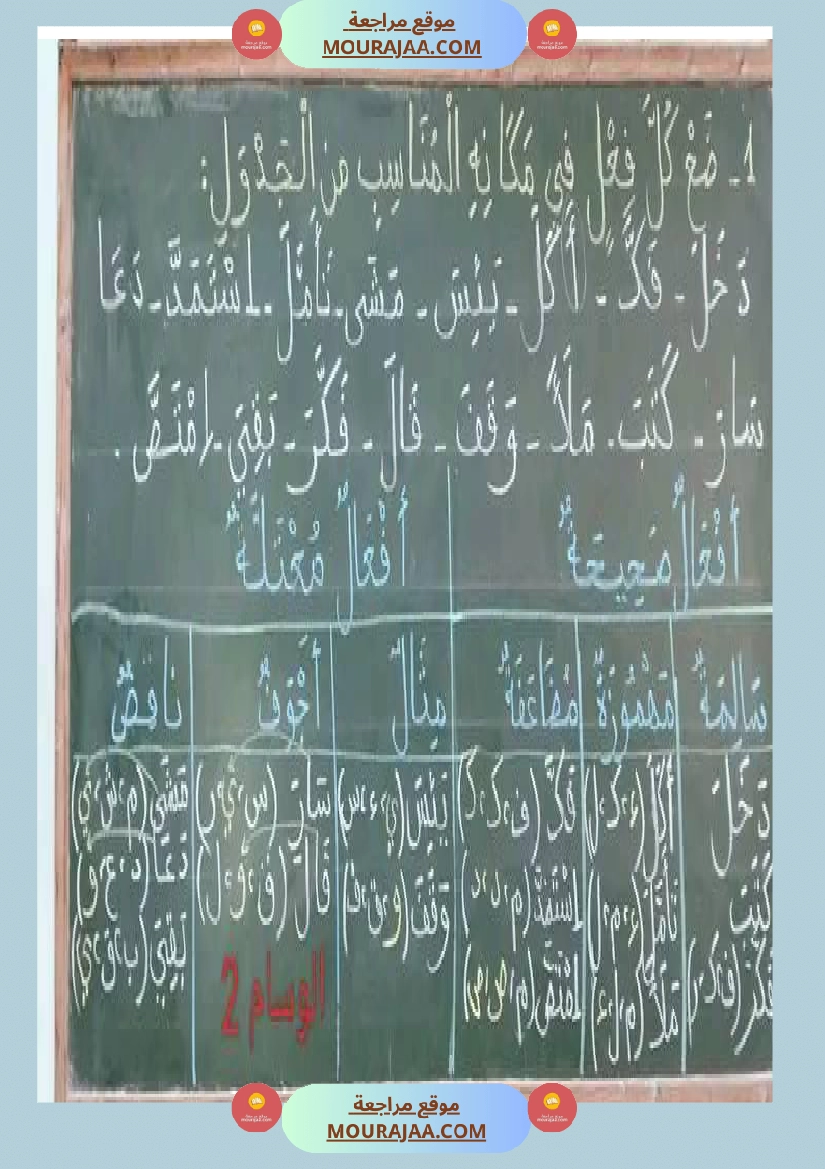 موقع مراجعة
MOURAJAA.COM
1- ضَعْ كُلَّ فِعْلٍ فِي مَكَانِهِ الْمُنَاسِبِ مِنَ الْجَدْوَلِ:
دَخَلَ - فَكَّ - أَكَلَ - يَئِسَ - مَشَى - تَأَمَّلَ - اِسْتَمَدَّ - دَعَا
سَارَ - كَتَبَ - مَلَأَ - وَقَفَ - قَالَ - فَكَّرَ - بَقِيَ - اِمْتَصَّ .
أَفْعَالٌ صَحِيحَةٌ أَفْعَالٌ مُعْتَلَّةٌ
سَالِمَةٌ مَهْمُوزَةٌ مُضَاعَفَةٌ مِثَالٌ أَجْوَفُ نَاقِصٌ
دَخَلَ أَكَلَ (ء، ك، ل) فَكَّ (ف، ك، ك) يَئِسَ (ي، ء، س) سَارَ (س، ي، ر) مَشَى (م، ش، ي)
كَتَبَ تَأَمَّلَ (ء، م، ل) اِسْتَمَدَّ (م، د، د) وَقَفَ (و، ق، ف) قَالَ (ق، و، ل) دَعَا (د، ع، و)
فَكَّرَ (ف، ك، ر) مَلَأَ (م، ل، ء) اِمْتَصَّ (م، ص، ص) بَقِيَ (ب، ق، ي)
الوسام 2
موقع مراجعة
MOURAJAA.COM